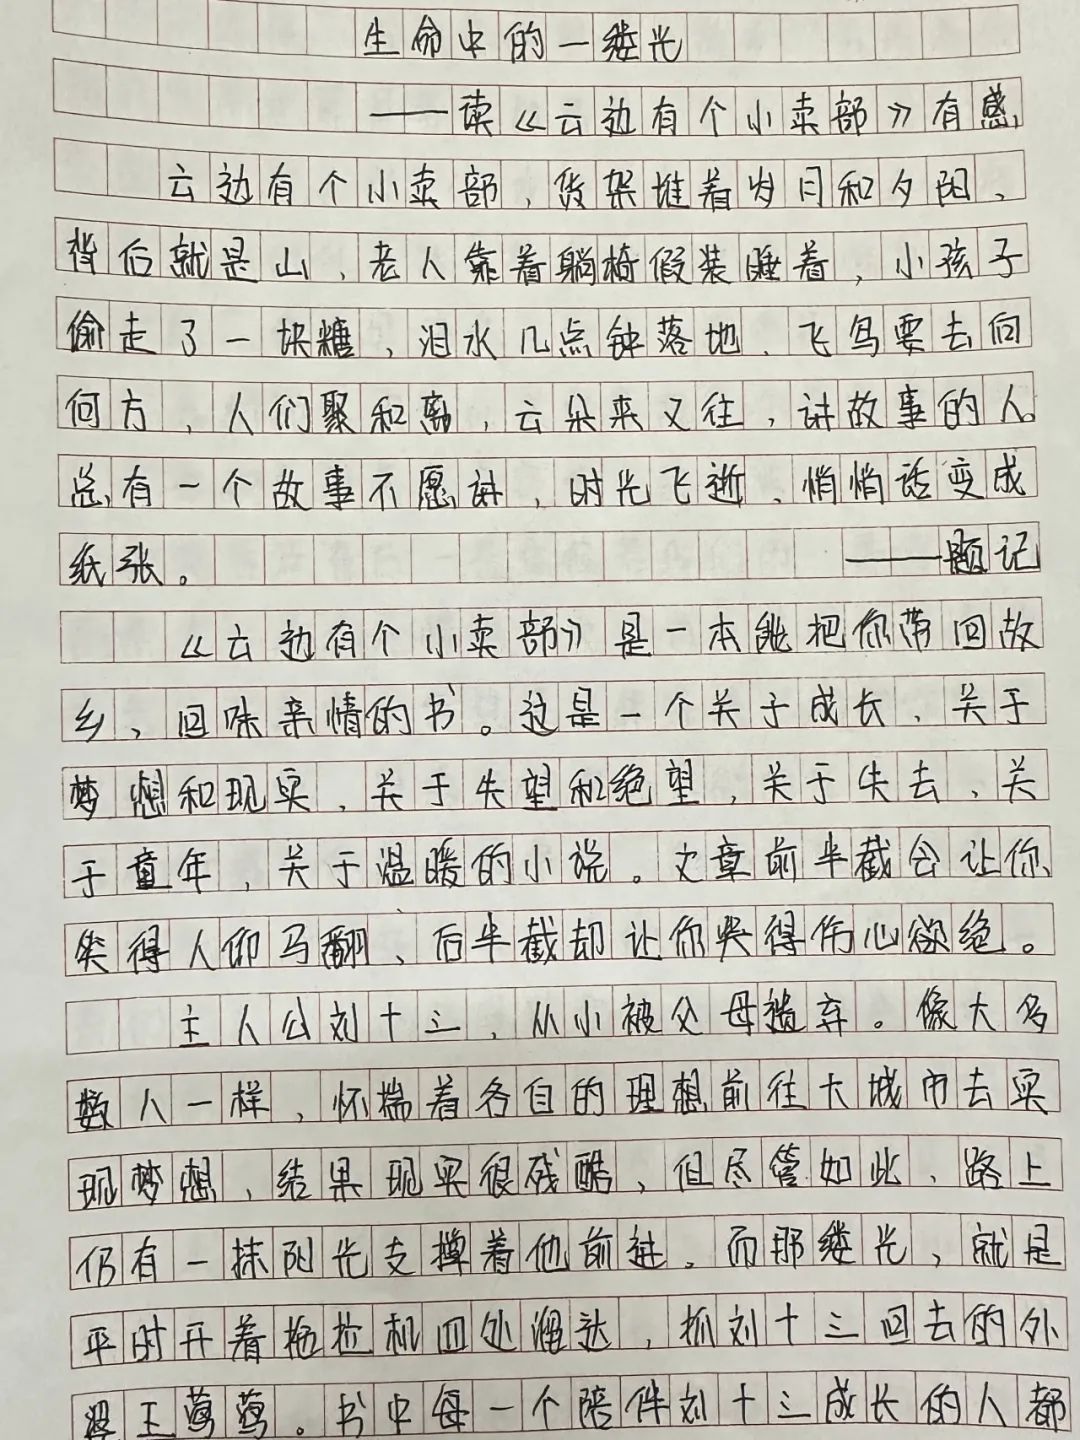 生命中的一缕光
——读《云边有个小卖部》有感
云边有个小卖部，货架堆着岁月和夕阳、
背后就是山、老人靠着躺椅假装睡着，小孩子
偷走了一块糖，泪水几点钟落地、飞鸟要去向
何方，人们聚和离，云朵来又往，讲故事的人
总有一个故事不愿讲，时光飞逝、悄悄话变成
纸张。 ——题记
《云边有个小卖部》是一本能把你带回故
乡、回味亲情的书。这是一个关于成长、关于
梦想和现实、关于失望和绝望，关于失去、关
于童年，关于温暖的小说。文章前半截会让你
笑得人仰马翻、后半截却让你哭得伤心欲绝。
主人公刘十三，从小被父母遗弃。像大多
数人一样，怀揣着各自的理想前往大城市去实
现梦想，结果现实很残酷，但尽管如此、路上
仍有一抹阳光支撑着他前进。而那缕光，就是
平时开着拖拉机四处溜达，抓刘十三回去的外
婆王莺莺。书中每一个陪伴刘十三成长的人都